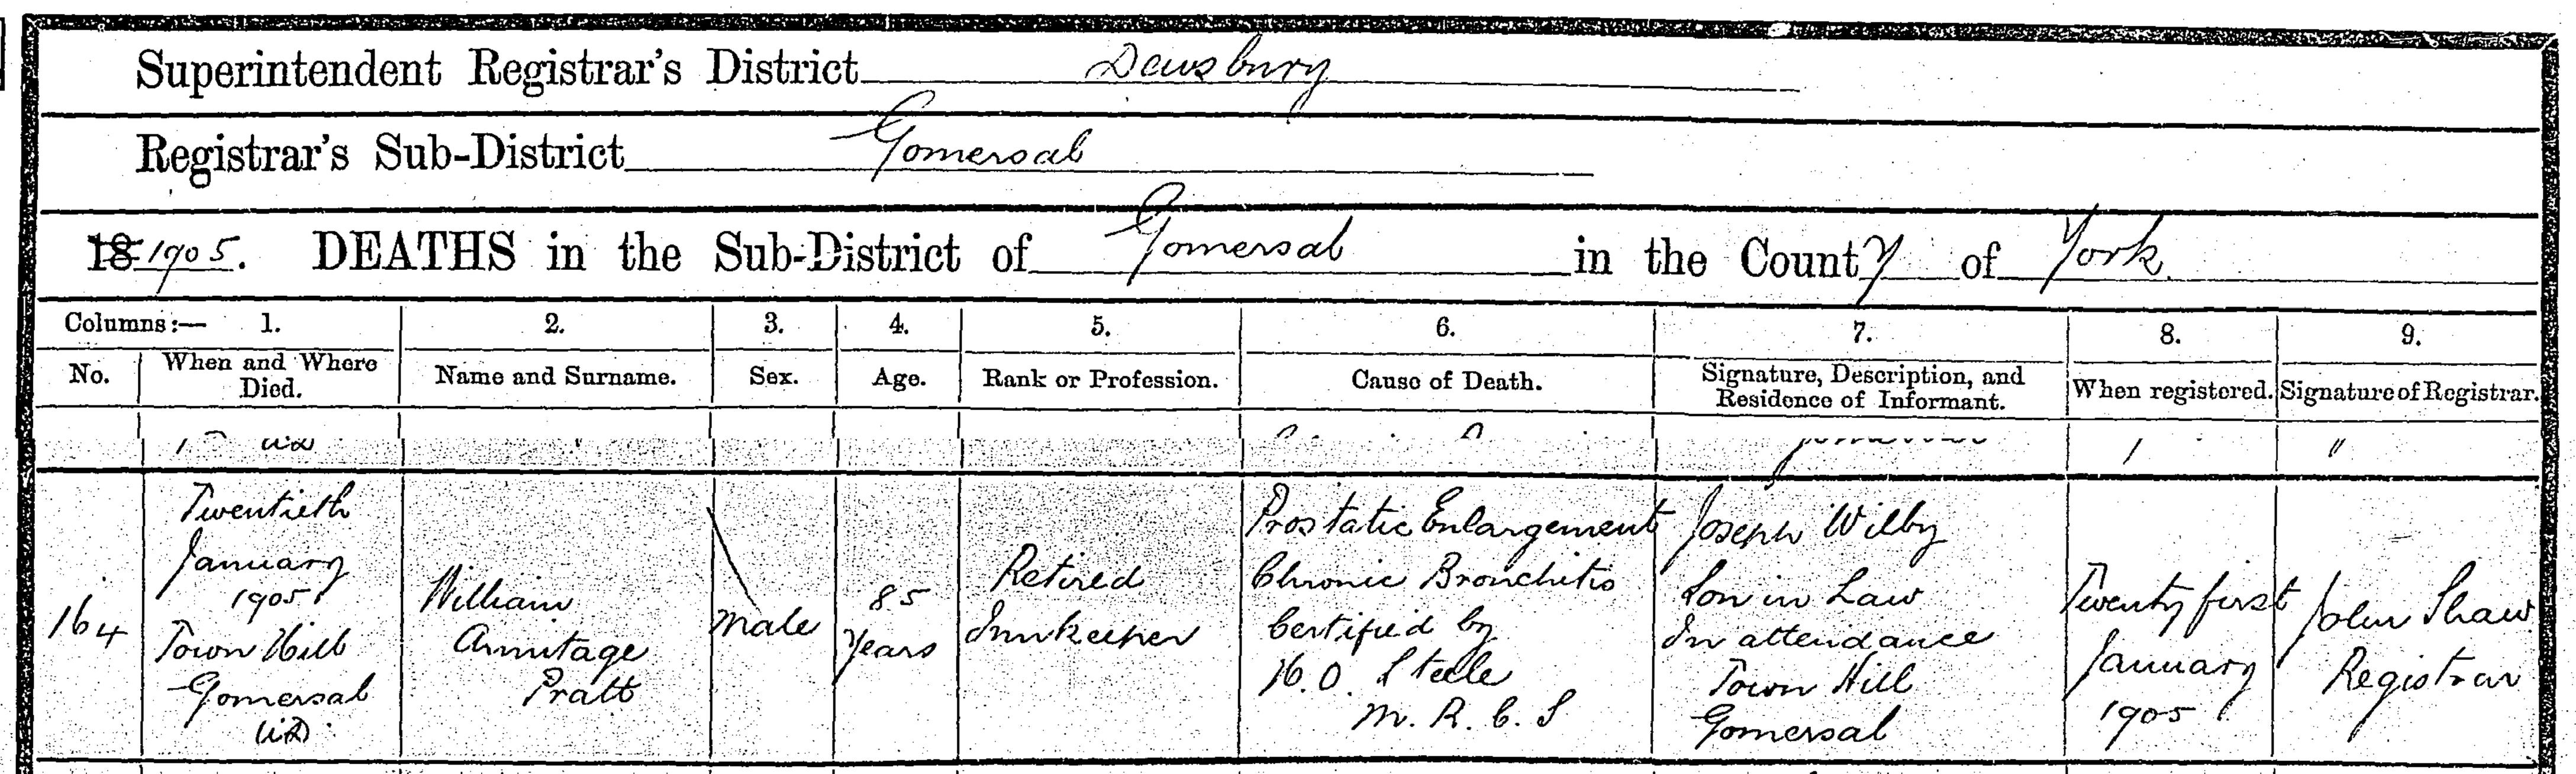 Superintendent Registrar's District Dewsbury
Registrar's Sub-District Gomersal
18 1905. DEATHS in the Sub-District of Gomersal in the County of York
Columns:— 1. 2. 3. 4. 5. 6. 7. 8. 9.
No. When and Where Died. Name and Surname. Sex. Age. Rank or Profession. Cause of Death. Signature, Description, and Residence of Informant. When registered. Signature of Registrar.
164
Twentieth
January
1905
Town Hill
Gomersal
William
Armitage
Pratt
Male
85
Years
Retired
Innkeeper
Prostatic Enlargement
Chronic Bronchitis
Certified by
H. O. Steele
M. R. C. S
Joseph Wilby
Son in Law
In attendance
Town Hill
Gomersal
Twenty first
January
1905
John Shaw
Registrar